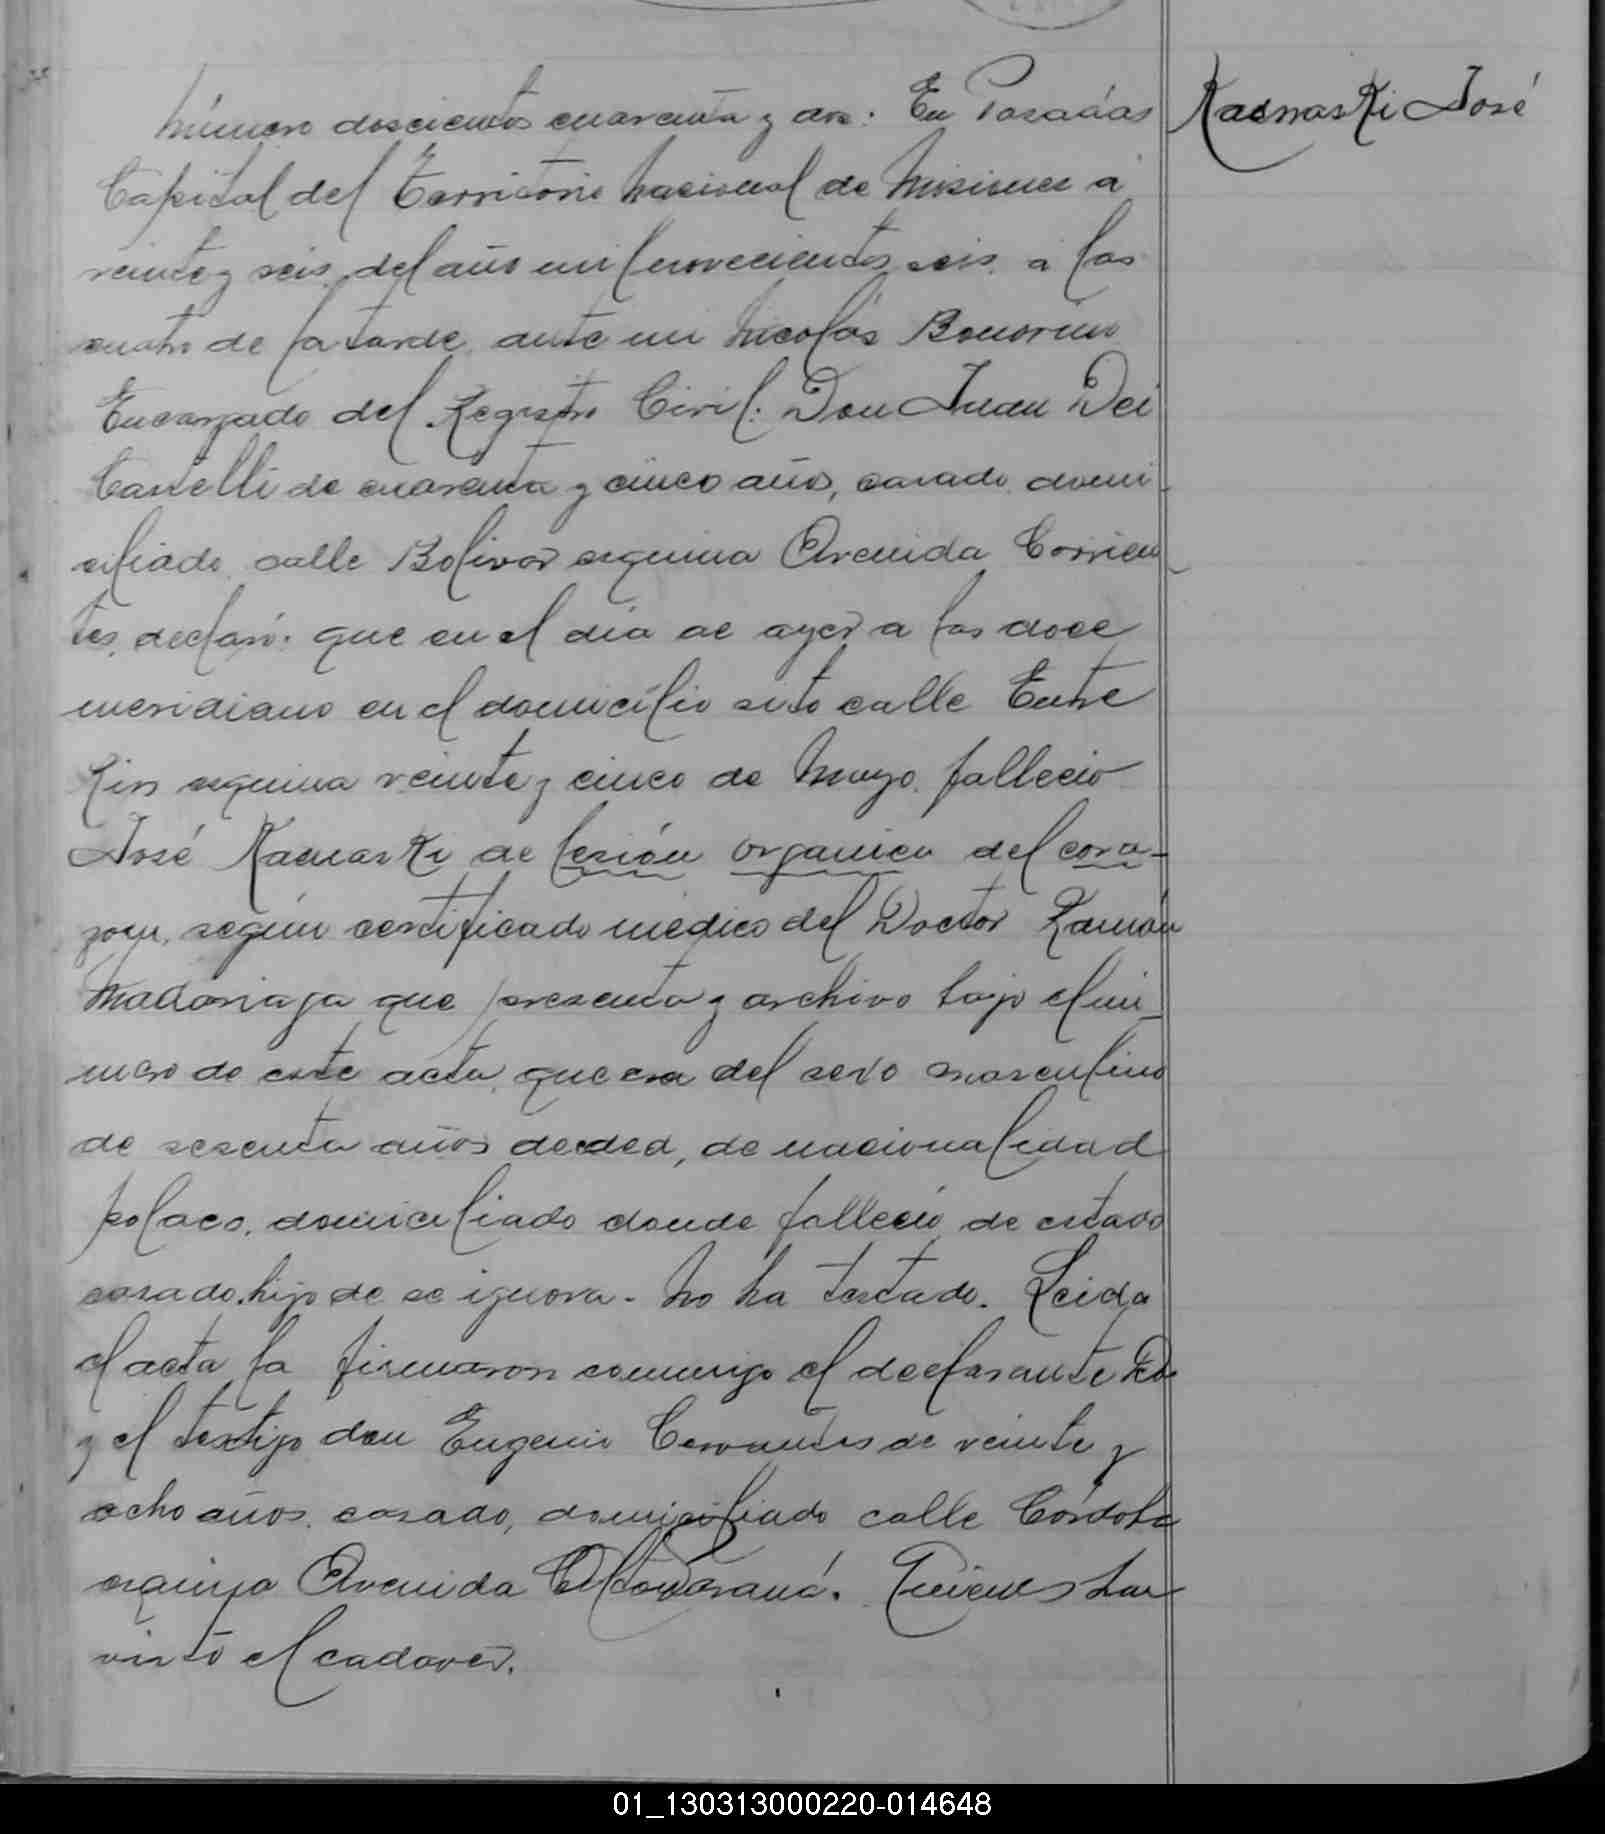 Número doscientos cuarenta y dos: En Posadas
Kasnaski José
Capital del Territorio Nacional de Misiones á
veinte y seis, del año mil novecientos seis, a las
cuatro de la tarde, ante mi Nicolás Bonorino
Encargado del Registro Civil: Don Juan Dei
Castelli de cuarenta y cinco años, casado, domi
ciliado calle Bolivar esquina Avenida Corrien
tes, declaró: que en el dia de ayer a las doce
meridiano en el domicilio sito calle Entre
Rios esquina veinte y cinco de Mayo, falleció
José Kasnaski de lesión organica del cora-
zon, según certificado médico del Doctor Ramón
Madariaga que presenta y archivo bajo el nú-
mero de este acta, que era del sexo masculino
de sesenta años de edad, de nacionalidad
polaco, domiciliado donde falleció, de estado
casado, hijo de se ignora. No ha testado. Leida
el acta la firmaron conmigo el declarante
y el testigo don Eugenio Cervantes de veinte y
ocho años, casado, domiciliado calle Córdoba
esquina Avenida Alto Paraná. Quienes han
visto el cadaver.
01_130313000220-014648